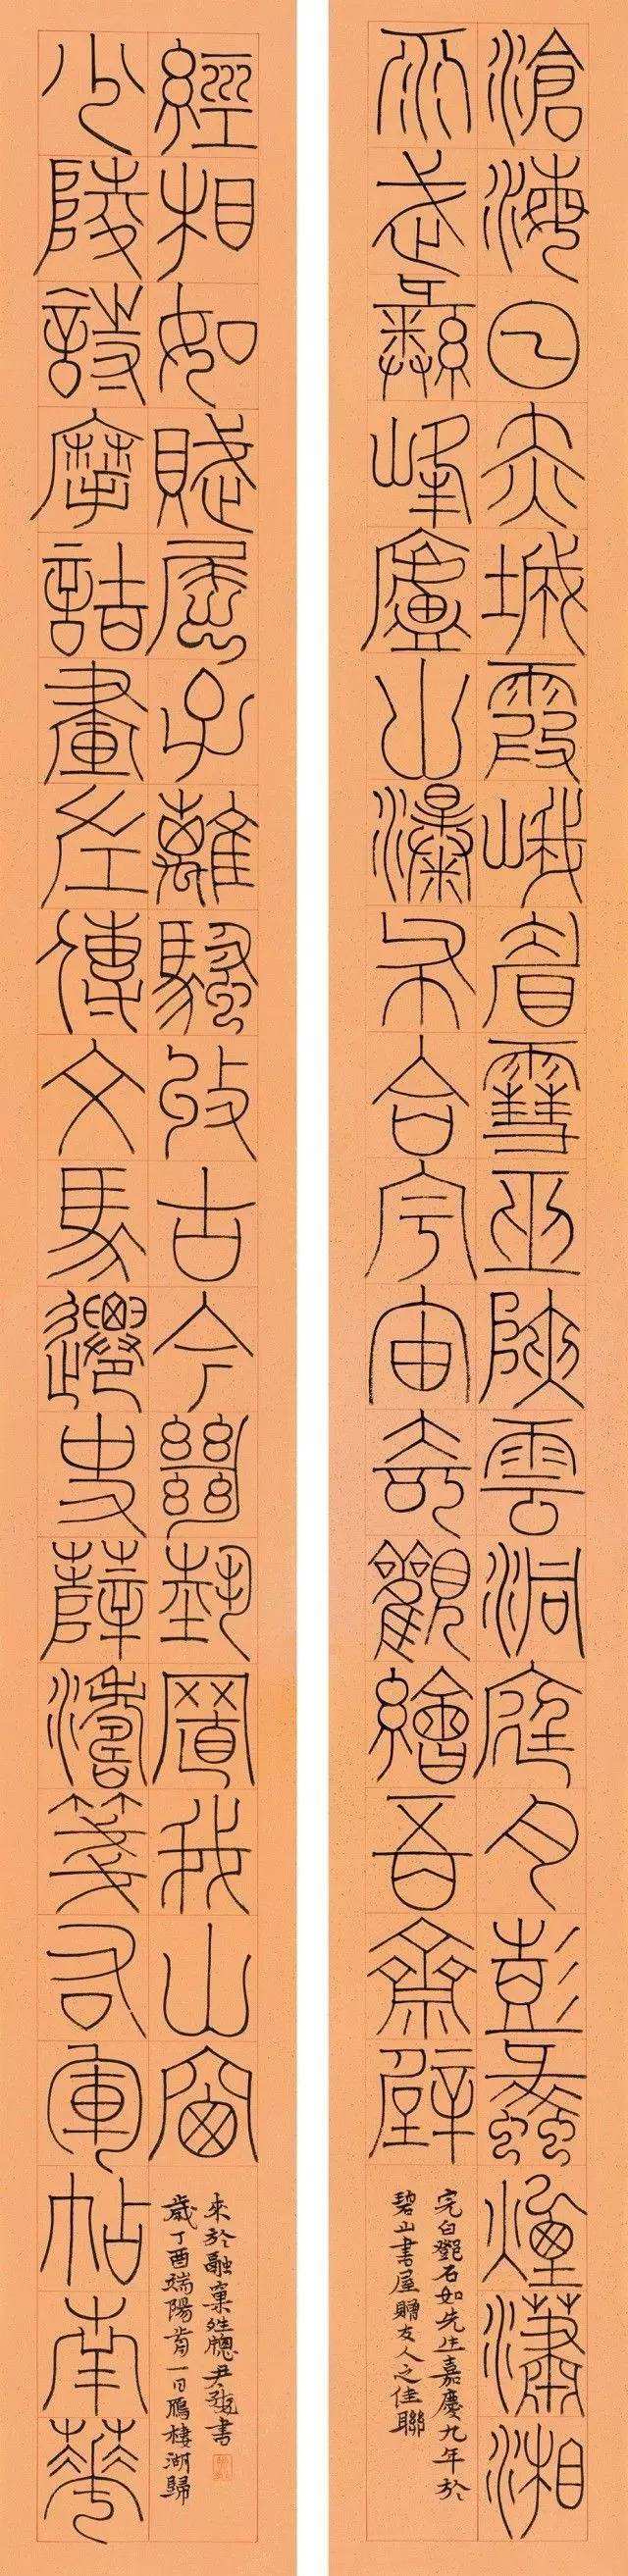 滄海日赤城霞峨眉雪巫峽雲洞庭月彭蠡煙瀟湘
雨武彝峰廬山瀑布合宇宙奇觀繪吾齋壁
完白鄧石如先生嘉慶九年於
碧山書屋贈友人之佳聯
少陵詩摩詰畫左傳文馬遷史薛濤箋右軍帖南華
經相如賦屈子離騷收古今絕藝置我山窗
歲丁酉端陽前一日鴈棲湖歸
來於融窠牕尹書